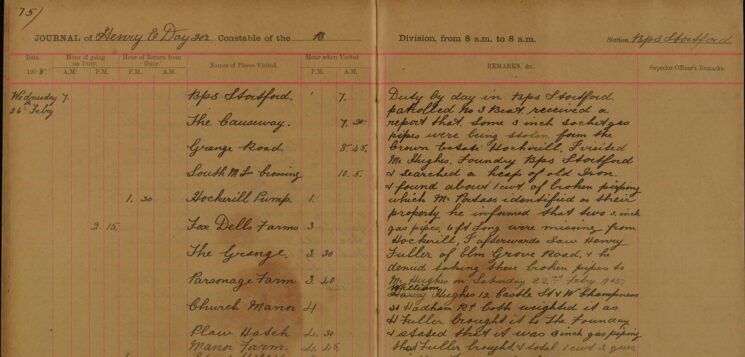 75)
JOURNAL of Henry E Day 202 Constable of the B Division, from 8 a.m. to 8 a.m. Station Bps Stortford
Date. Hour of going on Duty. Hour of Return from Duty. Names of Places Visited. Hour when Visited REMARKS, &c. Superior Officer's Remarks.
1908. A.M. P.M. P.M. A.M. P.M. A.M.
Wednesday 7. Bps Stortford. 7.
26th Feby
The Causeway. 7. 30
Grange Road. 8. 45
South Mill Crossing 10. 5.
1. 30 Hockerill Pump 1.
2. 15. Fox Dells Farms 3
The Grange. 3. 30
Parsonage Farm 3. 40
Church Manor 4
Plaw Hatch 4. 30
Manor Farm. 4. 45
Duty by day in Bps Stortford.
patrolled No 3 Beat received a
report that some 3 inch socket gas
pipes were being stolen from the
Crown Estate Hockerill, I visited
Mr Hughes, Foundry Bps Stortford
& searched a heap of old Iron.
& found about 1 cwt of broken piping
which Mr identified as their
property he informed that two 3 inch
gas pipes, 6 ft long were missing from
Hockerill, I afterwards saw Henry
Fuller of Elm Grove Road, & he
denied taking these broken pipes to
Mr Hughes on Saturday 22nd Feby
William
Hughes 12 Castle St & W Champness
Hadham Rd both weighed it as
H Fuller brought it to the Foundry
& stated that it was 3 inch gas piping
that Fuller brought, & total 1 cwt 3